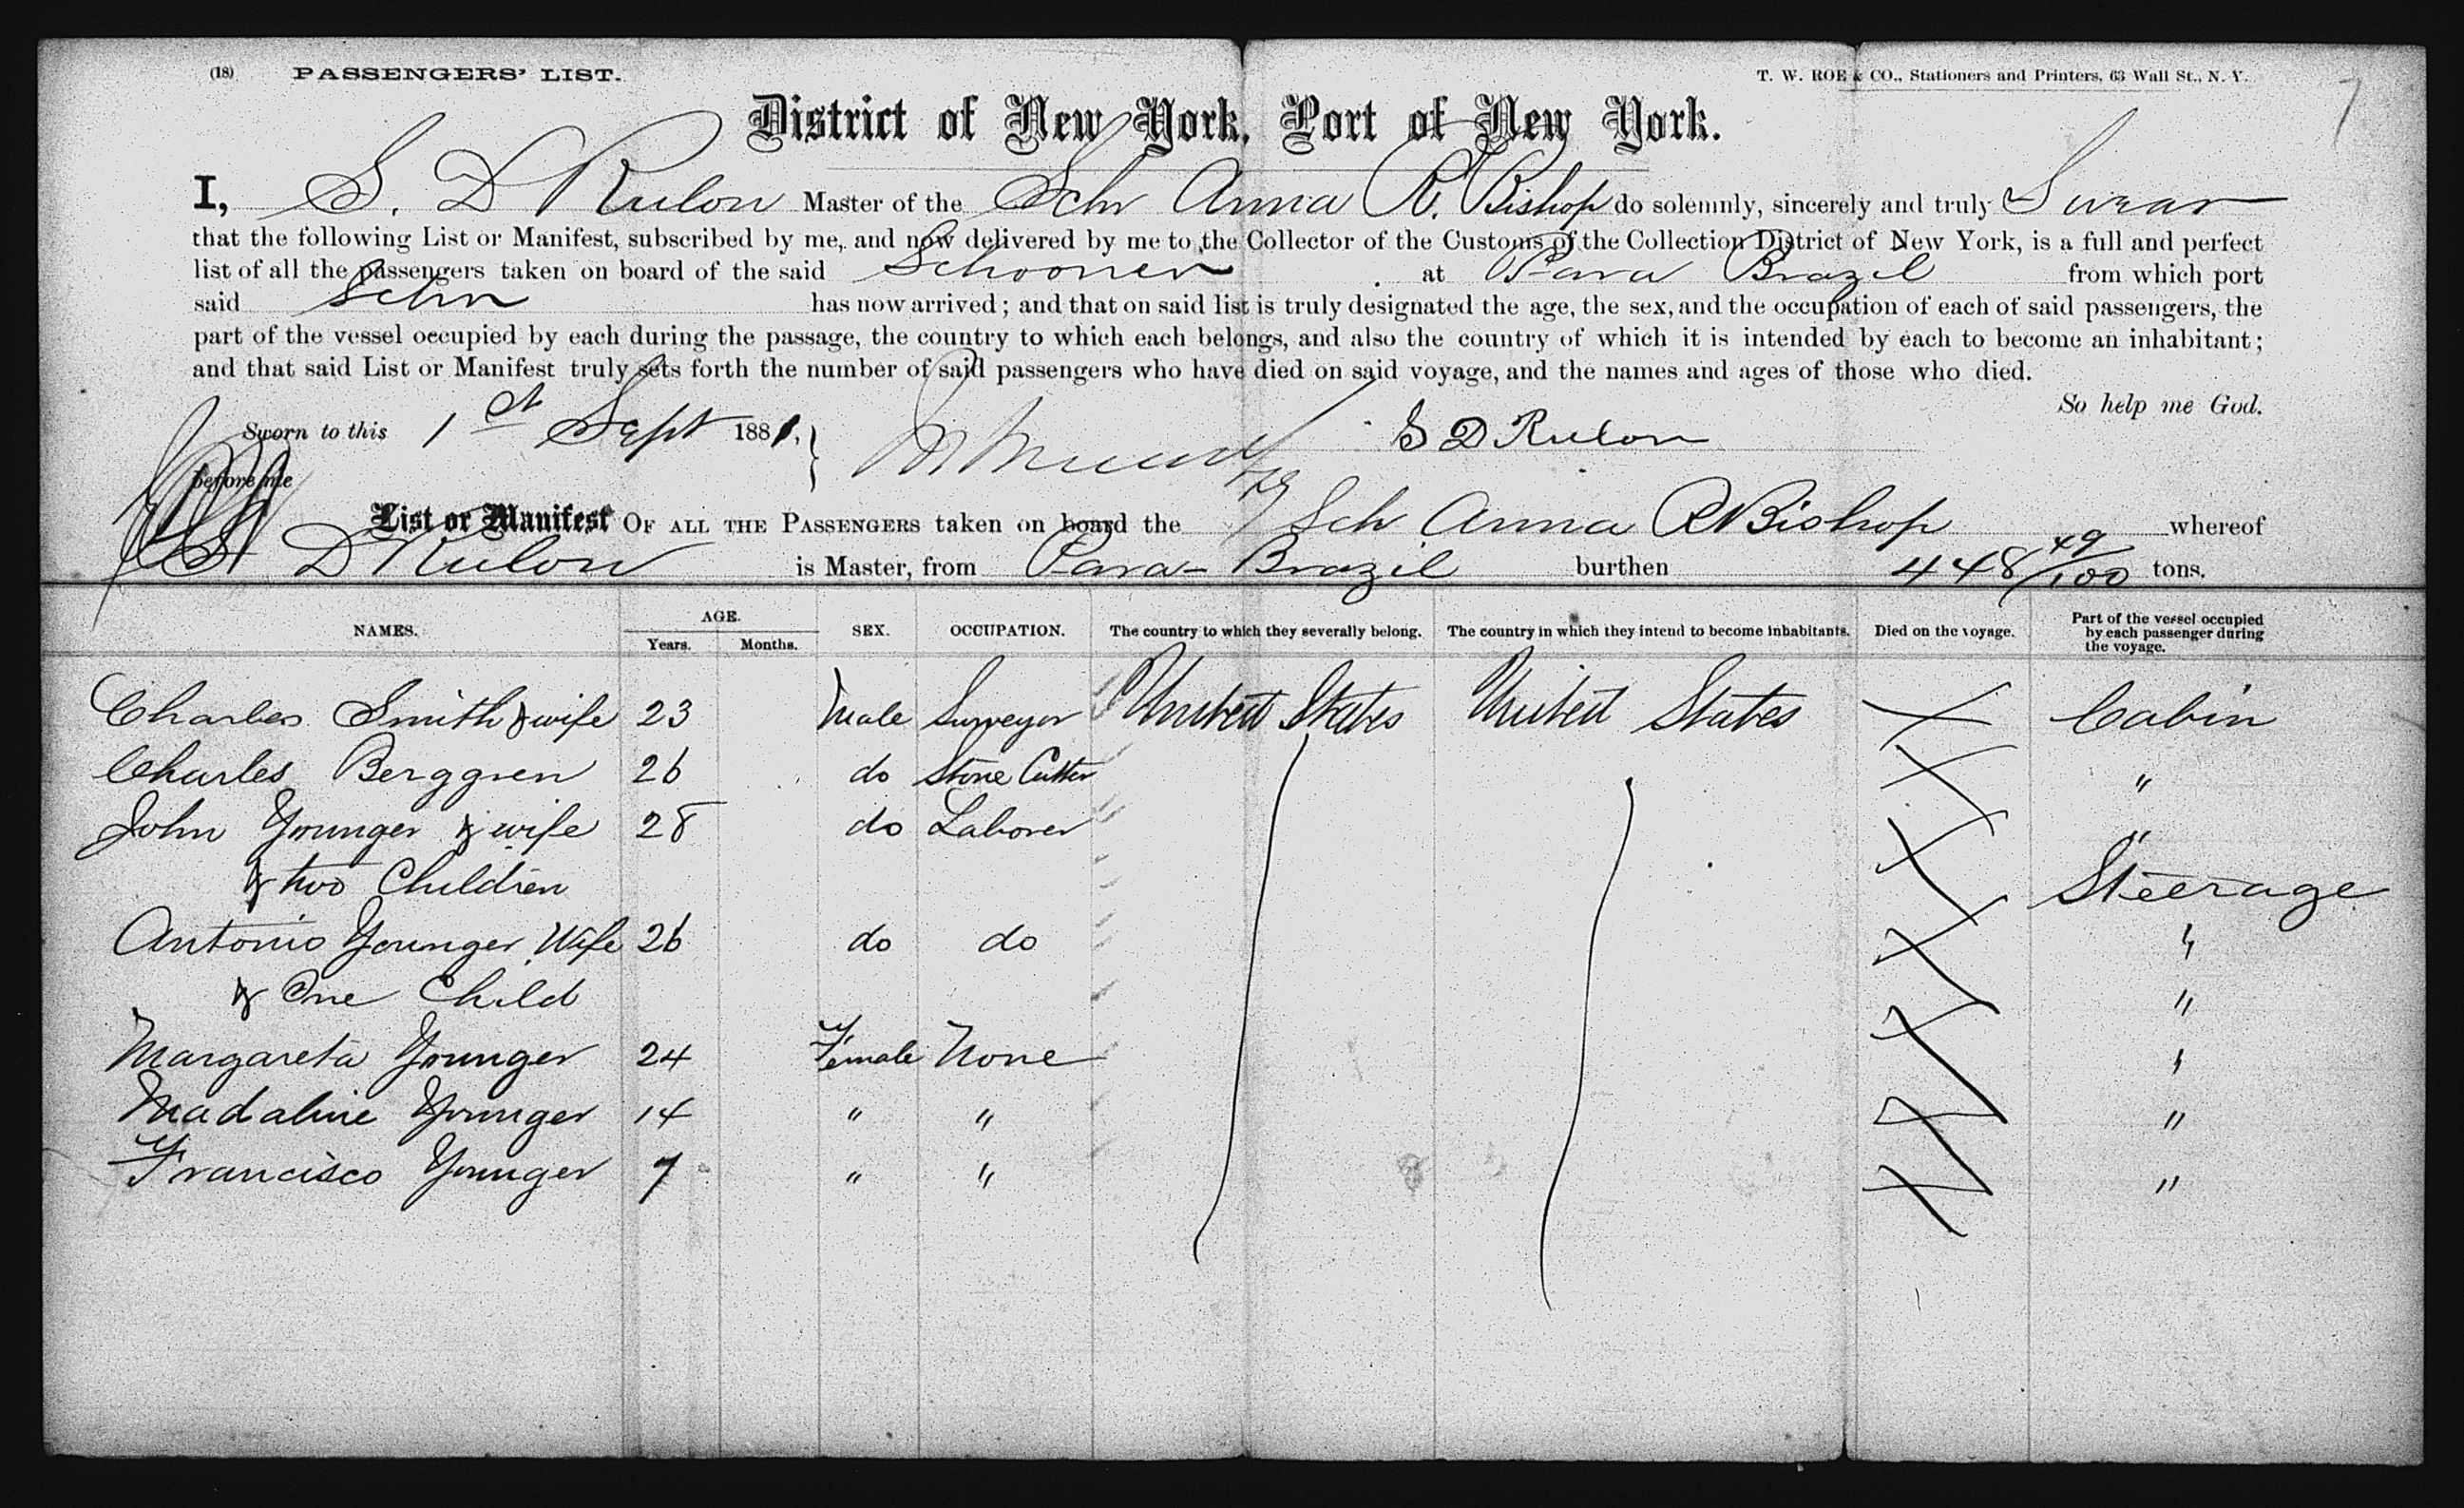 (18) PASSENGERS' LIST.
T. W. ROE & CO., Stationers and Printers, 63 Wall St., N. Y.
7
District of New York, Port of New York.
I, S. D Rulon Master of the Schr Anna R. Bishop do solemnly, sincerely and truly Swear
that the following List or Manifest, subscribed by me, and now delivered by me to the Collector of the Customs of the Collection District of New York, is a full and perfect
list of all the passengers taken on board of the said Schooner at Para Brazil from which port
said Schr has now arrived; and that on said list is truly designated the age, the sex, and the occupation of each of said passengers, the
part of the vessel occupied by each during the passage, the country to which each belongs, and also the country of which it is intended by each to become an inhabitant;
and that said List or Manifest truly sets forth the number of said passengers who have died on said voyage, and the names and ages of those who died.
So help me God.
Sworn to this 1st Sept 1881, } S D Rulon
before me
List or Manifest OF ALL THE PASSENGERS taken on board the Sch Anna R Bishop whereof
S D Rulon is Master, from Para - Brazil burthen 448 49/100 tons.
NAMES. AGE. Years. Months. SEX. OCCUPATION. The country to which they severally belong. The country in which they intend to become inhabitants. Died on the voyage. Part of the vessel occupied by each passenger during the voyage.
Charles Smith & wife 23 Male Surveyor United States United States X Cabin
Charles Berggren 26 do Stone Cutter X "
John Younger & wife 28 do Laborer X "
& two Children Steerage
Antonio Younger, Wife 26 do do X "
& One Child "
Margareta Younger 24 Female None X "
Madaline Younger 14 " " X "
Francisco Younger 7 " " X "